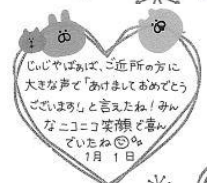 じぃじやばぁば、ご近所の方に
大きな声で「あけましておめでとう
ございます!」と言えたね!みん
なニコニコ笑顔で喜ん
でいたね
1月1日